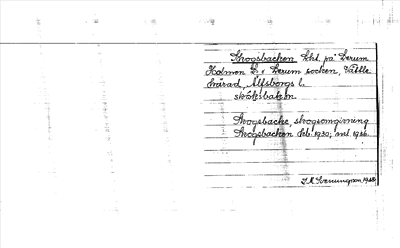 Skogsbacken lht på Lerum
Holmen 2, i Lerum socken, Vättle
härad, Älfsborgs l.
skóksbakən
Skogsbacke, skogsomgivning
Skogsbacken feb. 1930, 1966.
1966